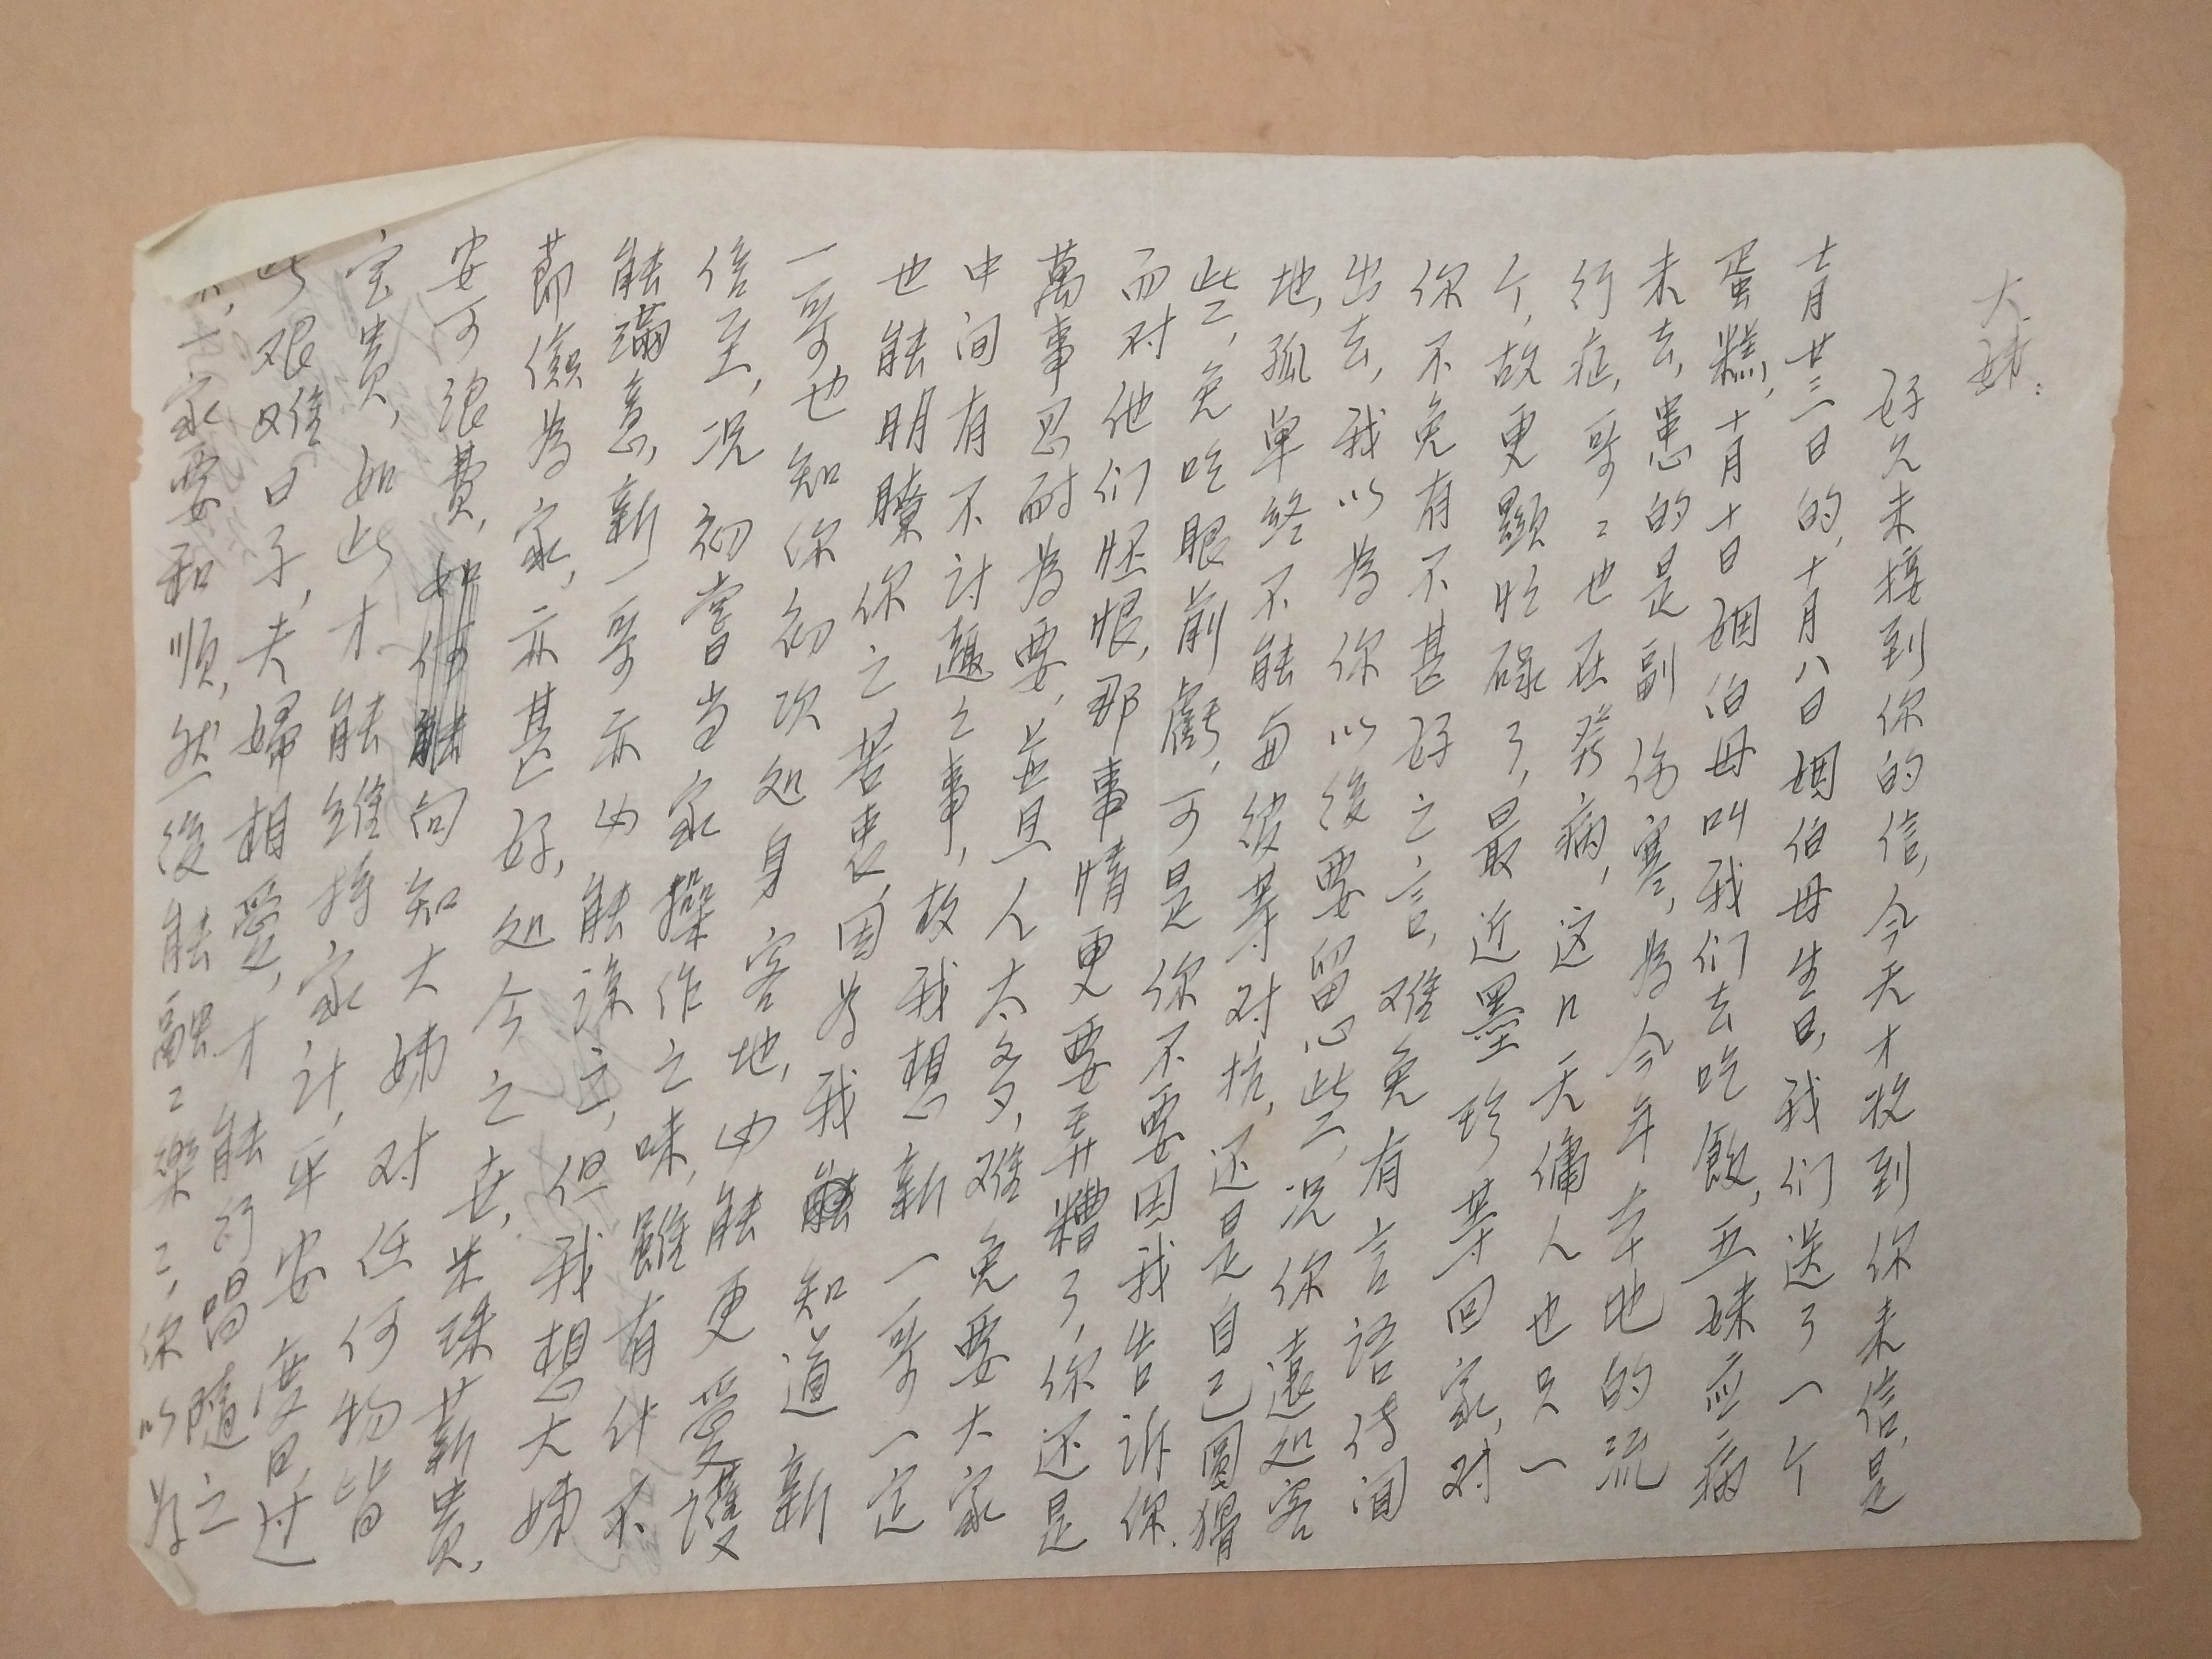 大姊：
好久未接到你的信，今天才收到你来信，是
十月廿三日的，十月八日姻伯母生日，我们送了一个
蛋糕，十月十日姻伯母叫我们去吃飯，五妹应病
未去，患的是副伤寒，為今年本地的流
行症，哥〻也在発病，这几天傭人也只一
个，故更顯忙碌了，最近墨珍等回家，对
你不免有不甚好之言，难免有言语传闻
出去，我以為你以後要留心些〻，况你遠处客
地，孤单终不能与彼等对抗，还是自己圆猾
些〻，免吃眼前虧，可是你不要因我告诉你，
而对他们怀恨，那事情更要弄糟了，你还是
萬事忍耐為要，並且人太多，难免要大家
中间有不讨趣之事，故我想新一哥一定
也能明瞭你之苦衷，因為我能知道新
一哥也知你初次处身客地，必能更爱護
倍至，况初嘗当家操作之味，雖有什不
能满意，新一哥亦必能諒之，但我想大姊
節儉為家，亦甚好，处今之世，米珠薪贵，
安可浪费，向知大姊对任何物皆
宝贵，如此才能维持家计，平安度日，过
此艰难日子，夫婦相爱，才能行唱隨之
家要和順，然後能融〻樂〻，你以為